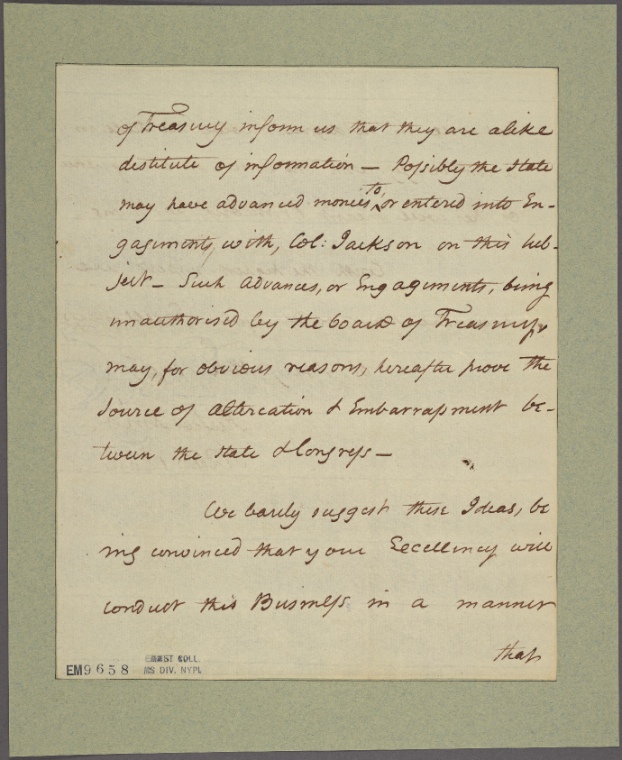 of Treasury inform us that they are alike
distitute of information — Possibly the State
may have advanced monies to, or entered into En-
gagiments, with, Col: Jackson on this sub-
ject — Such Advances, or Engagiments, being
unauthorised by the board of Treasury,
may, for obvious reasons, hereafter prove the
source of altercation & Embarrassment be-
tween the State & Congress —
We barely suggest these Ideas, be
ing convinced that your Excellency will
conduct this Business in a manner
that
EM9658
EMMET COLL.
MS DIV. NYPL